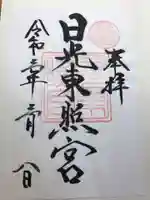 奉拝
日光東照宮
令和二年二月
八日